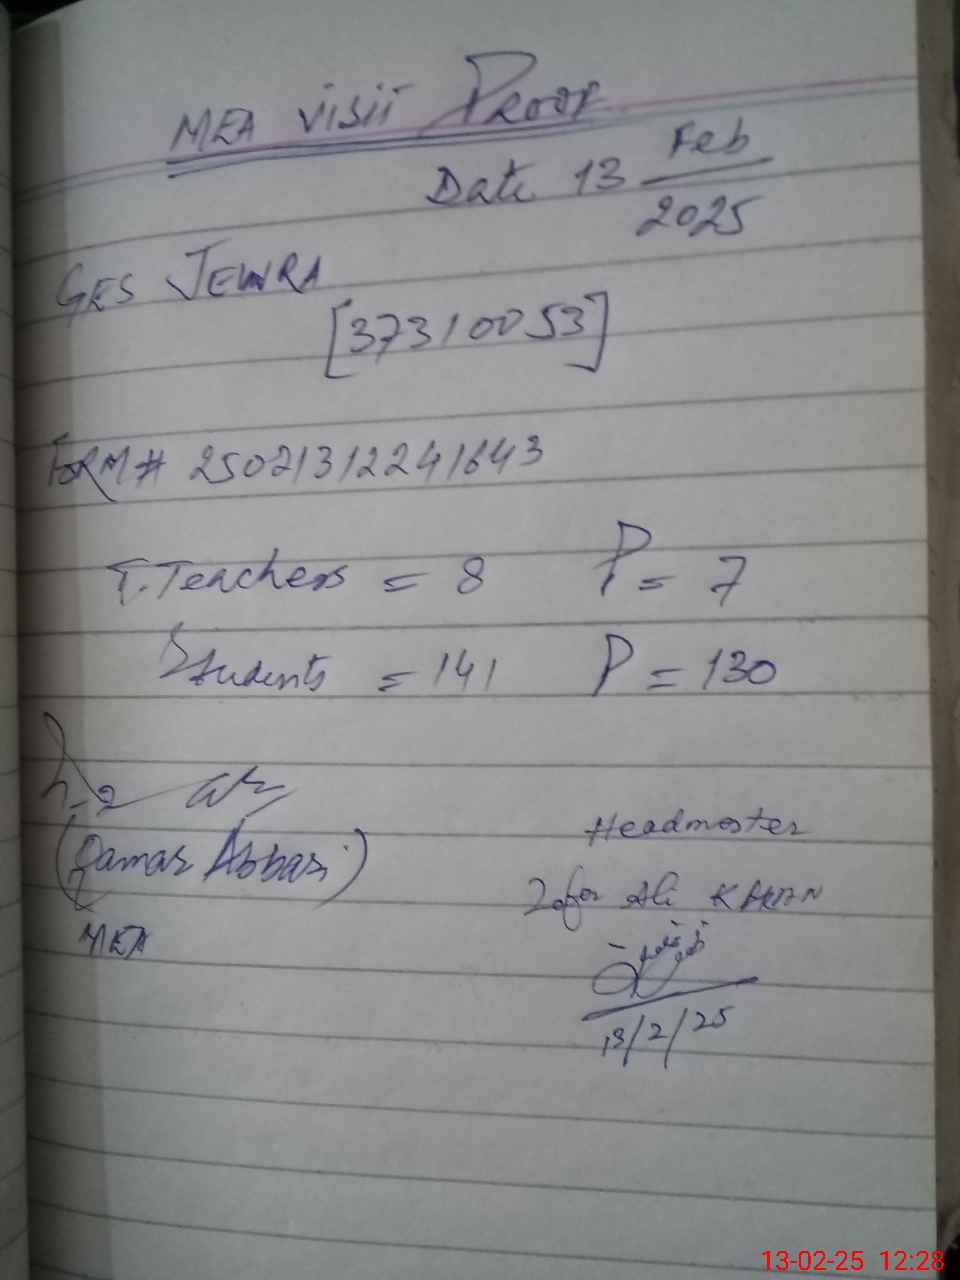 MEA VISIT PROOF
Date 13 Feb
2025
GES JEWRA
[37310053]
FORM# 25021312241643
T.Teachers = 8 P = 7
Students = 141 P = 130
(Qamar Abbas)
MEA
Headmaster
Zafar Ali KHAN
13/2/25
13-02-25 12:28